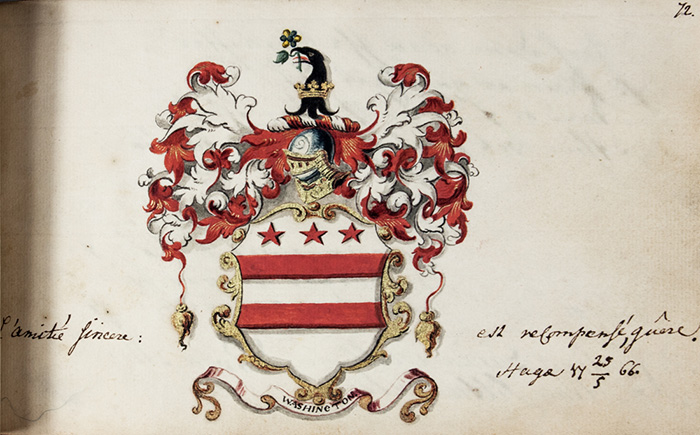 72.
WASHINGTON
L'amitié sincere: est recompensé, guêre.
Haga 25/5 66.